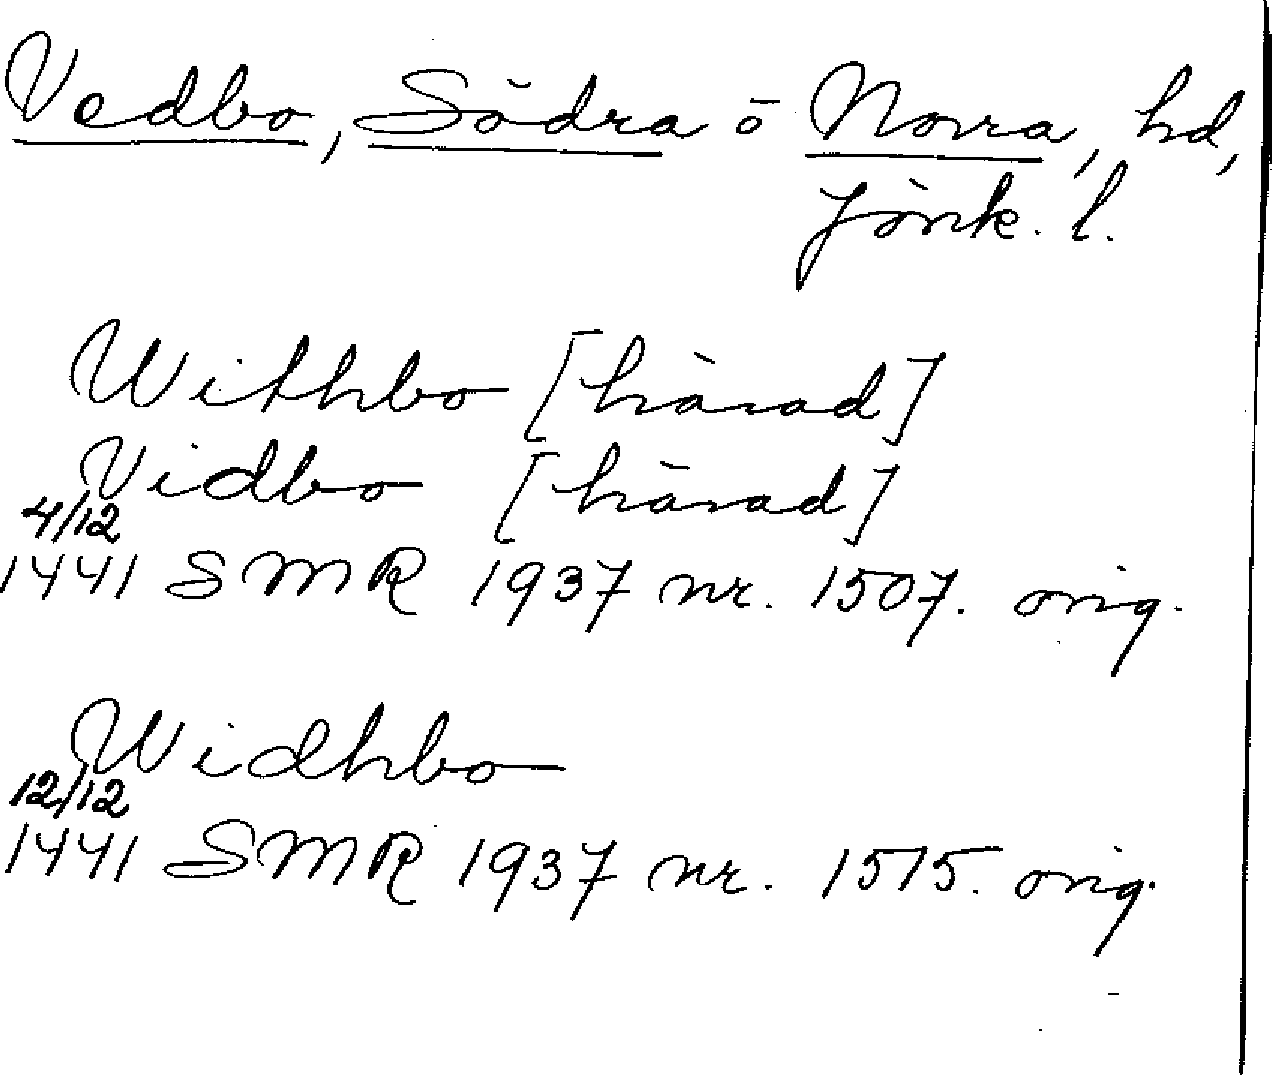 Vedbo, Södra o Norra, hd,
Jönk. l.
Withbo [härad]
Vidbo [härad]
4/12
1441 SMR 1937 nr. 1507. orig.
Widhbo
12/12
1441 SMR 1937 nr. 1515. orig.